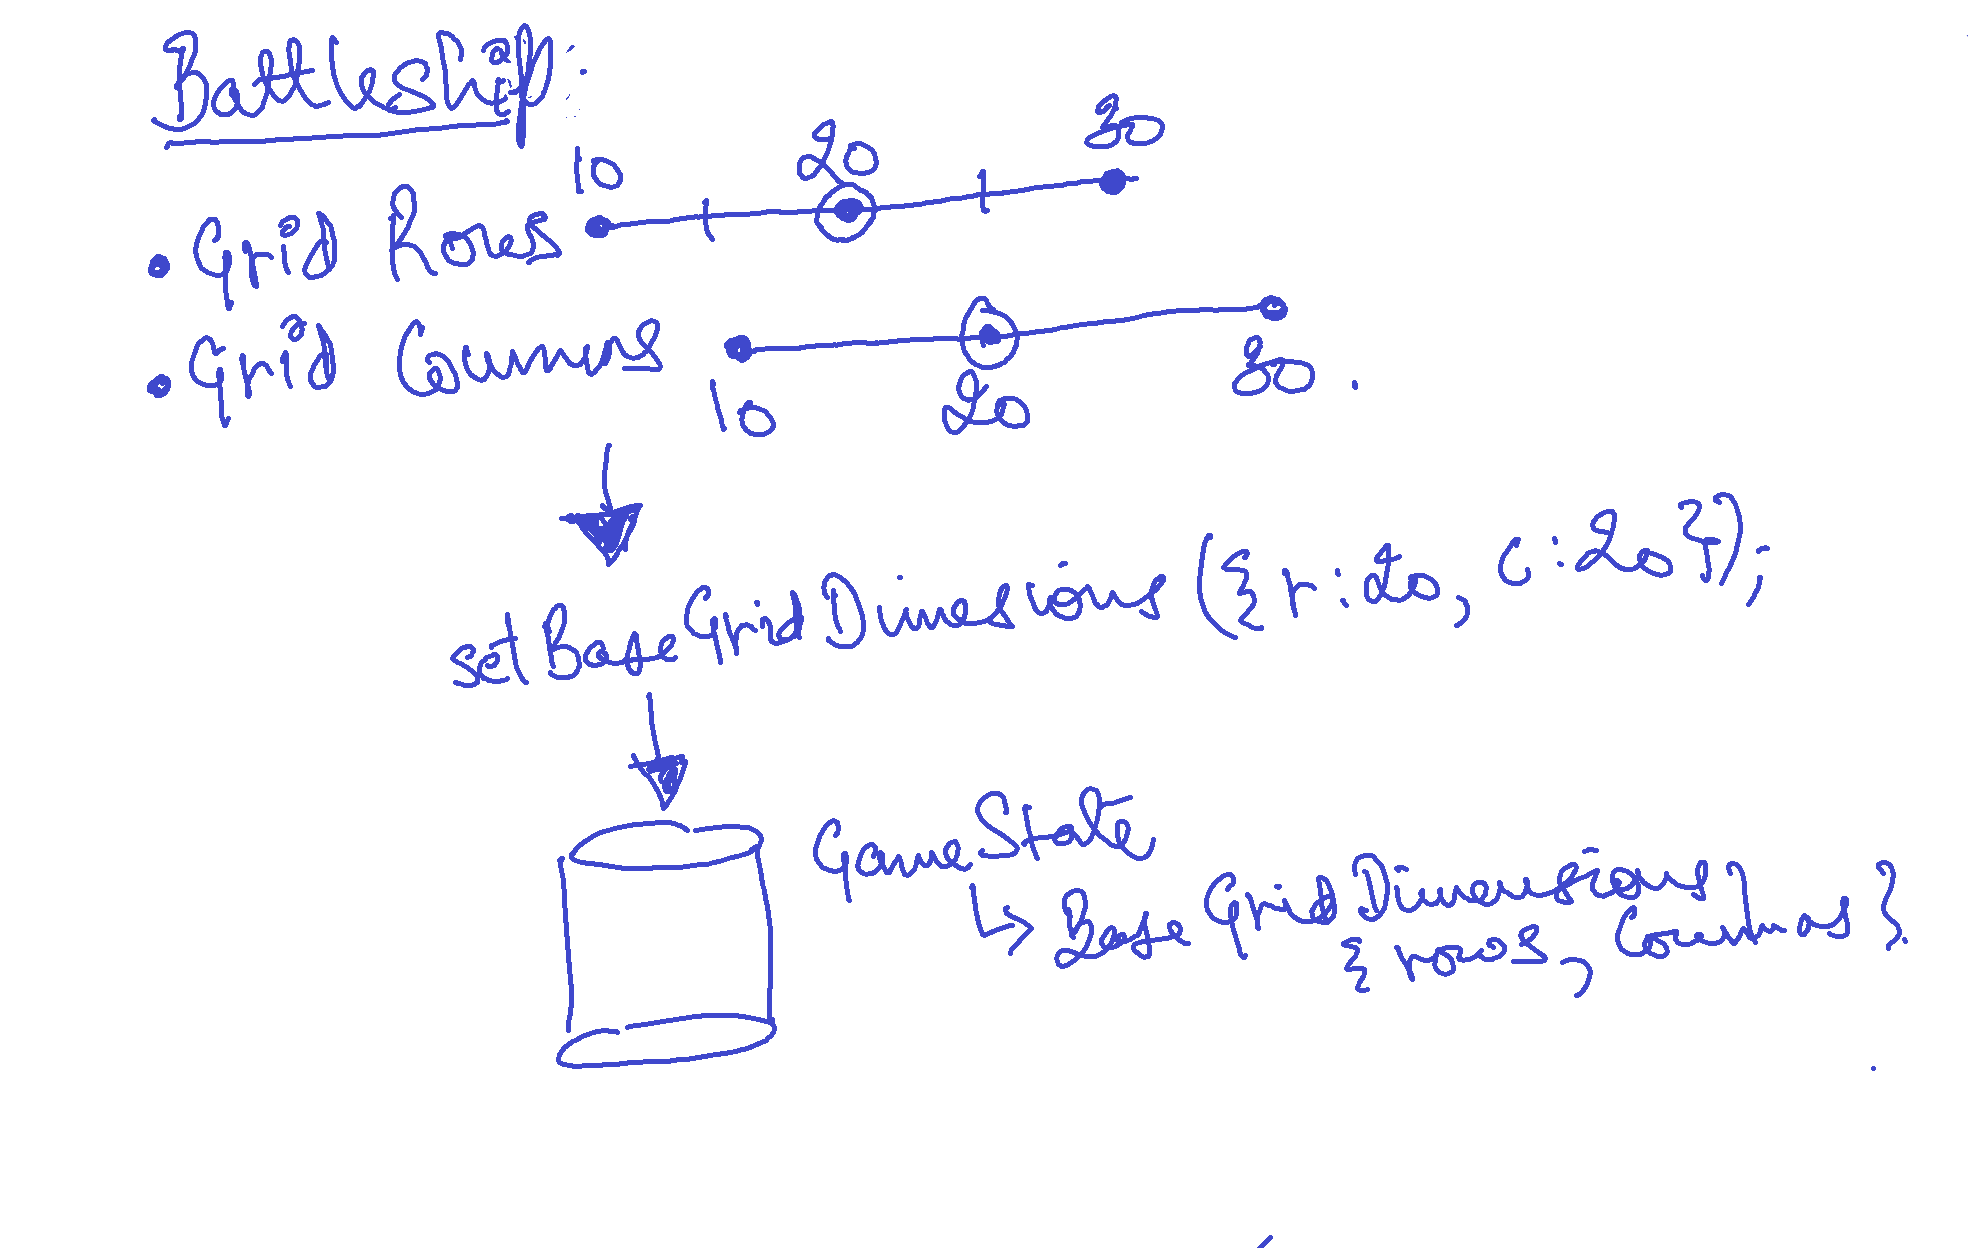 Battleship:
10 20 30
• Grid Rows
• Grid Coumns
10 20 30.
setBaseGridDimesions ({r:20, c:20});
GameState
↳ BaseGridDimensions
{rows, Coumns}